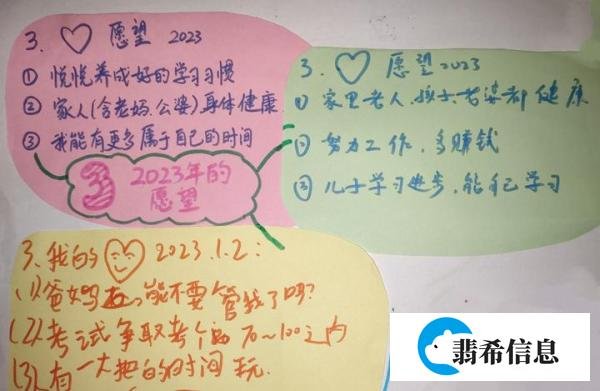 3. ♡ 愿望 2023
① 悦悦养成好的学习习惯
② 家人(含老妈.公婆)身体健康.
③ 我能有更多属于自己的时间
3 2023年的
愿望
3. ♡ 愿望2023
① 家里老人.孩子.老婆都健康
② 努力工作.多赚钱
③ 儿子学习进步.能自己学习
3.我的♡ 2023.1.2:
(1)爸妈 能不要管我了吗?
(2)考试争取考个 70~100之内
(3)有一大把的时间玩.
翡希信息